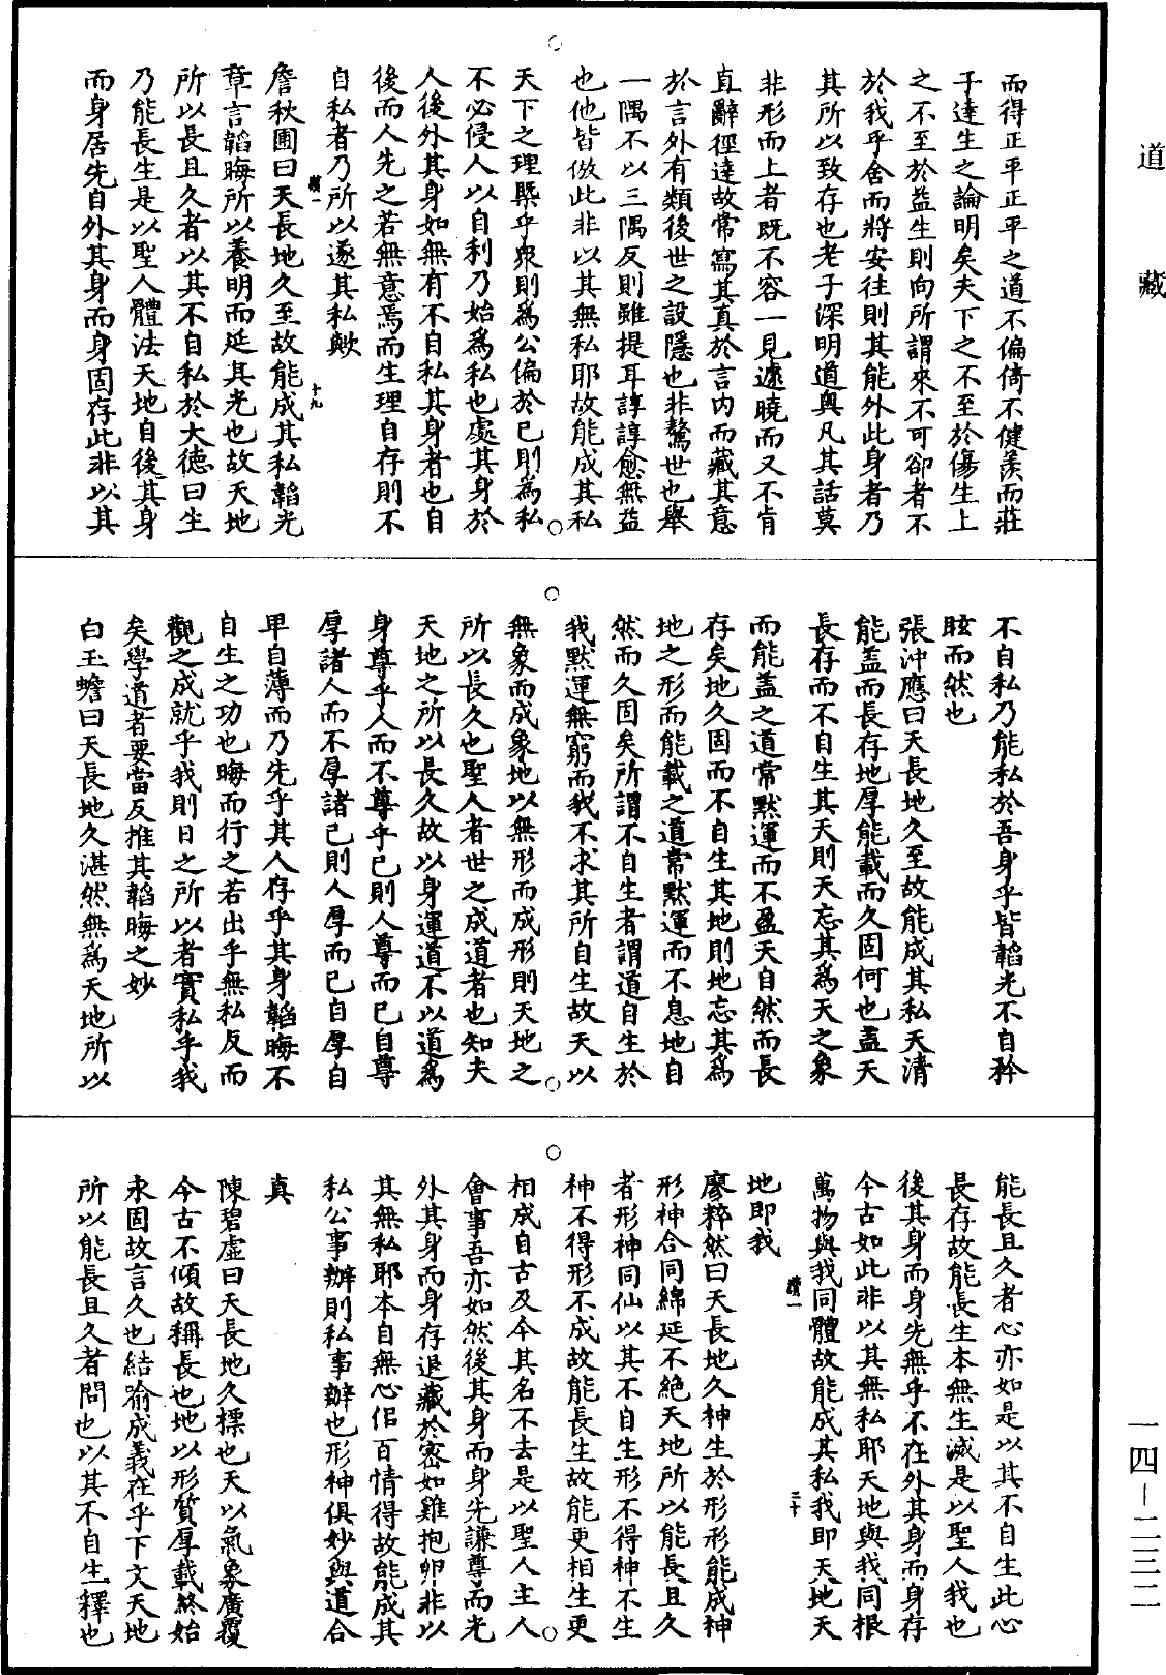 道藏
而得正平正平之道不偏倚不健羨而莊
子達生之論明矣夫下之不至於傷生上
之不至於益生則向所謂來不可卻者不
於我乎舍而將安往則其能外此身者乃
其所以致存也老子深明道奧凡其話莫
非形而上者既不容一見遽曉而又不肯
直辭徑達故常寫其真於言內而藏其意
於言外有類後世之設隱也非騖世也舉
一隅不以三隅反則雖提耳諄諄愈無益
也他皆倣此非以其無私耶故能成其私
天下之理槩乎衆則為公偏於已則為私
不必侵人以自利乃始為私也處其身於
人後外其身如無有不自私其身者也自
後而人先之若無意焉而生理自存則不
自私者乃所以遂其私歟
十九
詹秋圃曰天長地久至故能成其私韜光
章言韜晦所以養明而延其光也故天地
所以長且久者以其不自私於大德曰生
乃能長生是以聖人體法天地自後其身
而身居先自外其身而身固存此非以其
不自私乃能私於吾身乎皆韜光不自矜
眩而然也
張沖應曰天長地久至故能成其私天清
能盖而長存地厚能載而久固何也盖天
長存而不自生其天則天忘其為天之象
而能盖之道常默運而不盈天自然而長
存矣地久固而不自生其地則地忘其為
地之形而能載之道常默運而不息地自
然而久固矣所謂不自生者謂道自生於
我默運無窮而我不求其所自生故天以
無象而成象地以無形而成形則天地之
所以長久也聖人者世之成道者也知夫
天地之所以長久故以身運道不以道為
身尊乎人而不尊乎已則人尊而已自尊
厚諸人而不厚諸已則人厚而已自厚自
卑自薄而乃先乎其人存乎其身韜晦不
自生之功也晦而行之若出乎無私反而
觀之成就乎我則日之所以者實私乎我
矣學道者要當反推其韜晦之妙
白玉蟾曰天長地久湛然無為天地所以
能長且久者心亦如是以其不自生此心
長存故能長生本無生滅是以聖人我也
後其身而身先無乎不在外其身而身存
今古如此非以其無私耶天地與我同根
萬物與我同體故能成其私我即天地天
地即我
二十
廖粹然曰天長地久神生於形形能成神
形神合同綿延不絕天地所以能長且久
者形神同仙以其不自生形不得神不生
神不得形不成故能長生故能更相生更
相成自古及今其名不去是以聖人主人
會事吾亦如然後其身而身先謙尊而光
外其身而身存退藏於密如雞抱卵非以
其無私耶本自無心侣百情得故能成其
私公事辦則私事辦也形神俱妙與道合
真
陳碧虛曰天長地久標也天以氣象廣覆
今古不傾故稱長也地以形質厚載終始
永固故言久也結喻成義在乎下文天地
所以能長且久者問也以其不自生釋也
一四－二三二